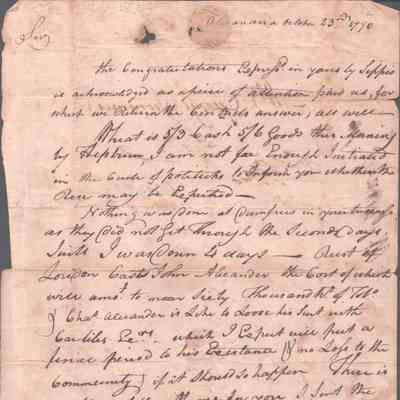 Alexandria October 23rd 1790
Sir,
the Congratulations Express'd in yours by
is acknowledged as a piece of attention paid us, for
which we Return the Civil answer, all well —
Wheat is 5/3 Cash 5/6 Goods this Morning
by Hepburn, I am not far Enough Initiated
in the Circle of politicks to Inform you whether the
Rise may be Expected —
Nothing was done at Dumfries in your
as they did not get through the Second days
Suits I was down 4 days — Rust of
Loudon Casts John Alexander the Cost of which
will amt. to near Sixty Thousand lb of Tobo.
Chas Alexander is Like to Loose his Suit with
Carliles Exrs. which I Expect will put a
final period to his Existance (& no Loss to the
Community) if it Should so happen There is
I Sent the